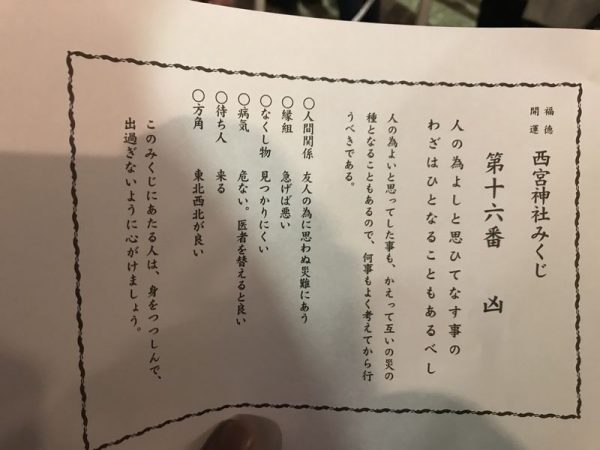 福徳
開運
西宮神社みくじ
第十六番 凶
人の為よしと思ひてなす事の
わざはひとなることもあるべし
人の為よいと思ってした事も、かえって互いの災の
種となることもあるので、何事もよく考えてから行
うべきである。
〇人間関係 友人の為に思わぬ災難にあう
〇縁組 急げば悪い
〇なくし物 見つかりにくい
〇病気 危ない。医者を替えると良い
〇待ち人 来る
〇方角 東北西北が良い
このみくじにあたる人は、身をつつしんで、
出過ぎないように心がけましょう。